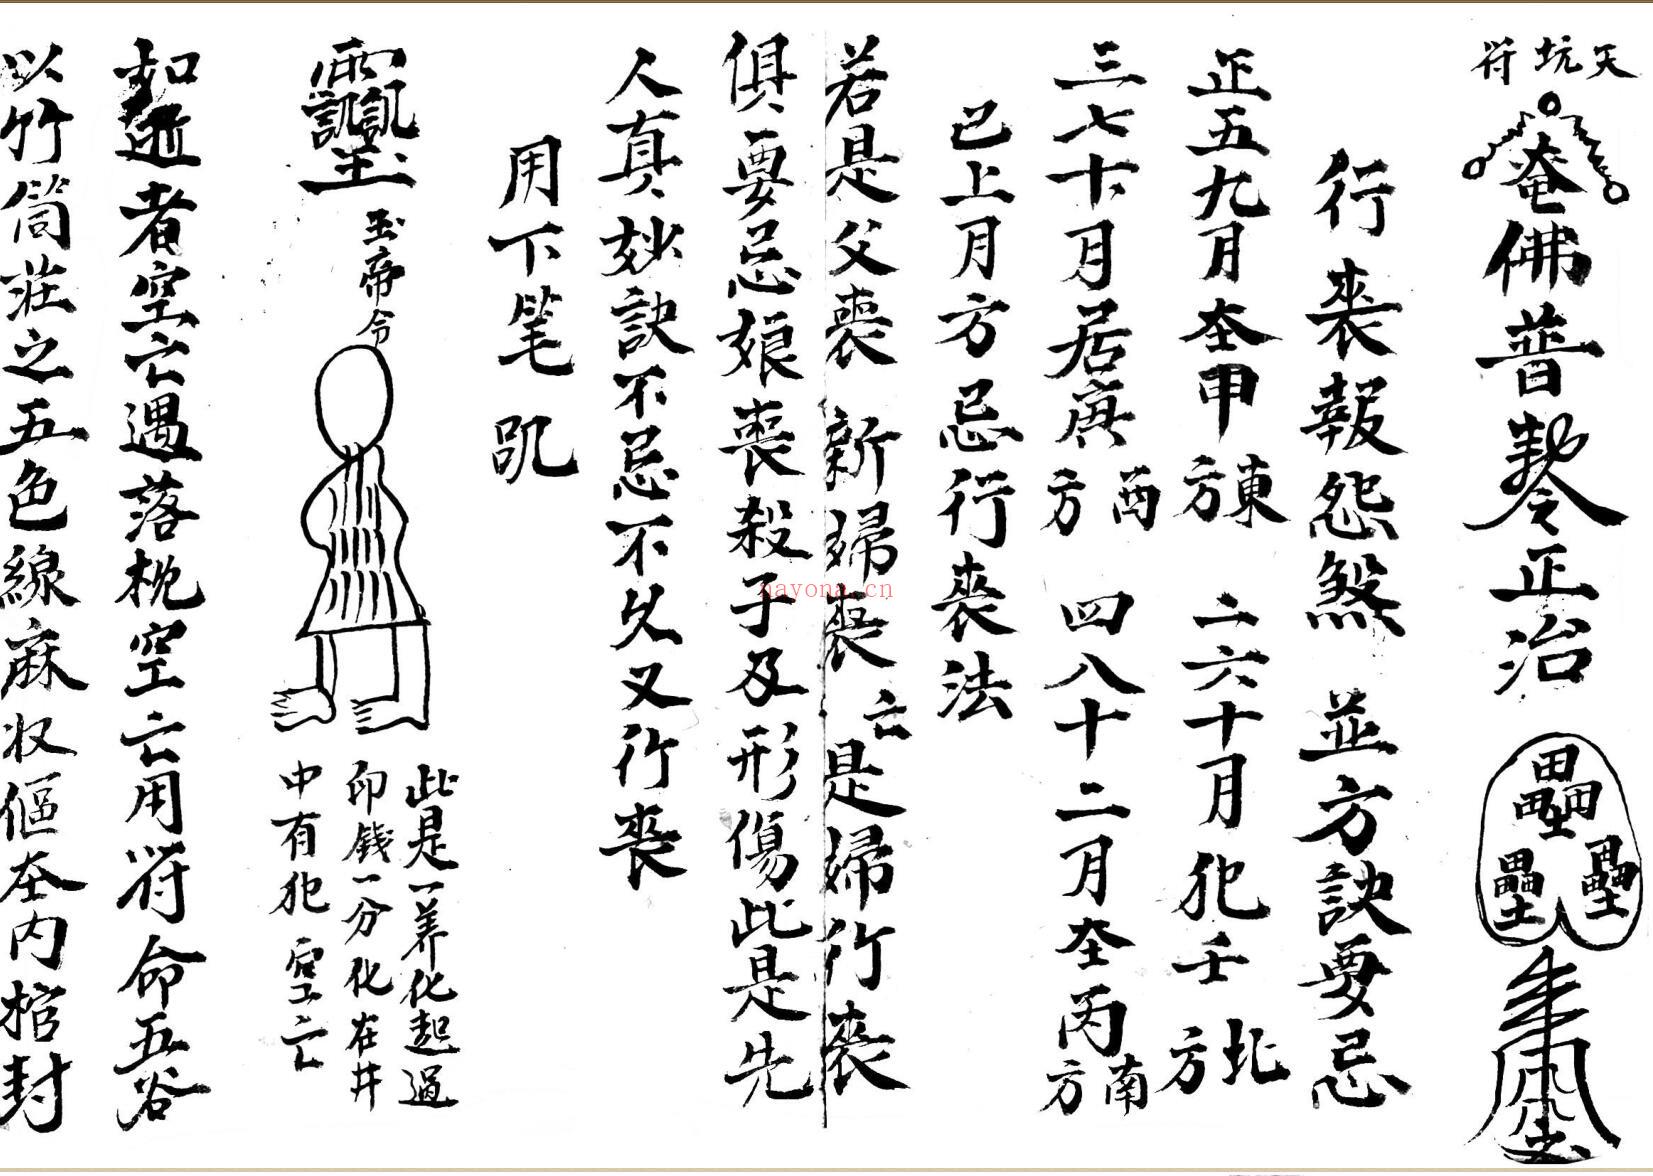 天坑符
奄佛普 正治
行丧報怨煞 並方訣要忌
正五九月在甲東方 二六十月犯壬北方
三七十月居庚酉方 四八十二月在丙南方
已上月方忌行丧法
若是父丧 新婦丧亡是婦行丧
俱要忌娘丧殺子及形傷此是先
人真妙訣不忌不久又行丧
用下笔
玉帝令
此是一养化起過
印錢一分化在井
中有犯空亡
如逝者空亡遇落枕空亡用符命五谷
以竹筒莊之五色線麻收傴在内棺封
nayona.cn